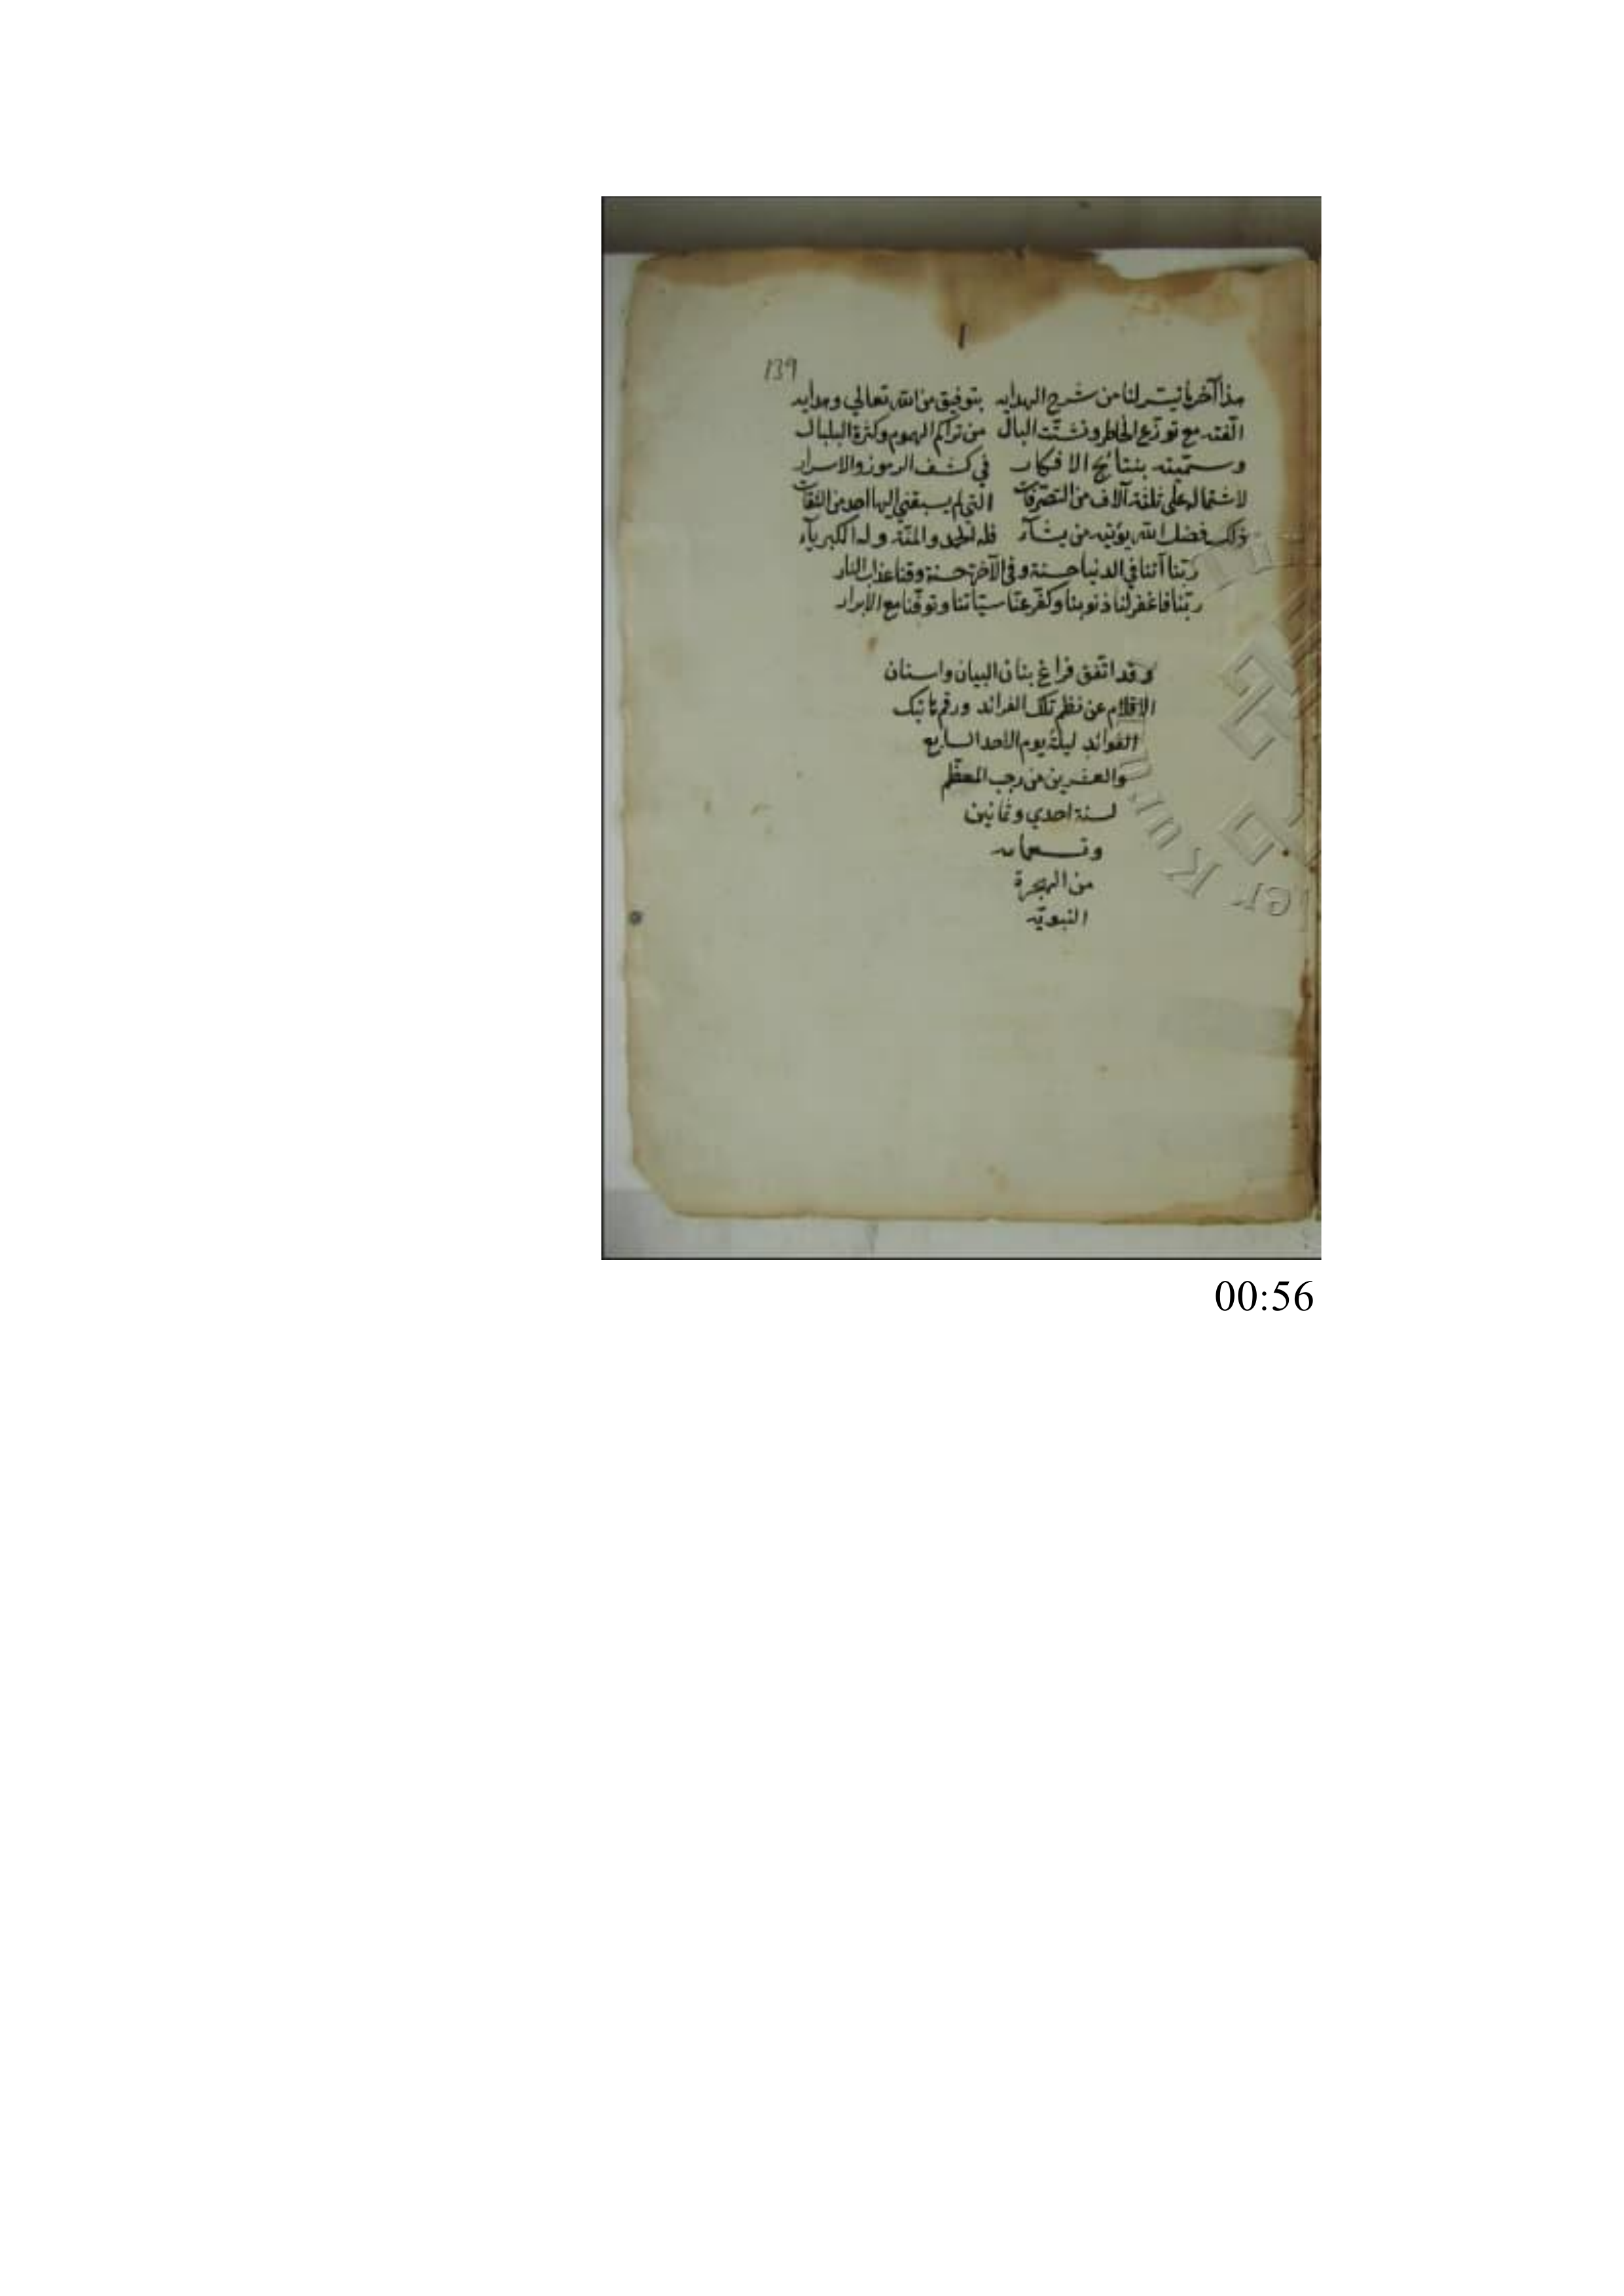 139
هذا آخر ما تيسر لنا من شرح الهدايه بتوفيق من الله تعالي وهدايه
الّفته مع توزّع الخاطر وتشتّت البال من تراكم الهموم وكثرة البلبال
وسمّيته بنتائج الافكار في كشف الرموز والاسرار
لاشتماله علي ثلثة آلاف من التصرّفات التي لم يسبقني اليها احد من الثقات
ذلك فضل الله يؤتيه من يشآء فله الحمد والمنّة وله الكبريآء
ربّنا آتنا في الدنيا حسنة وفي الآخرة حسنة وقنا عذاب النار
ربّنا فاغفر لنا ذنوبنا وكفّر عنّا سيّاتنا وتوفّنا مع الابرار
وقد اتّفق فراغ بنان البيان واسنان
الاقلام عن نظم تلك الفرائد ورقم هاتيك
الفوائد ليلة يوم الاحد السابع
والعشرين من رجب المعظّم
لسنة احدي وثمانين
وتسعمائه
من الهجرة
النبويّه
00:56